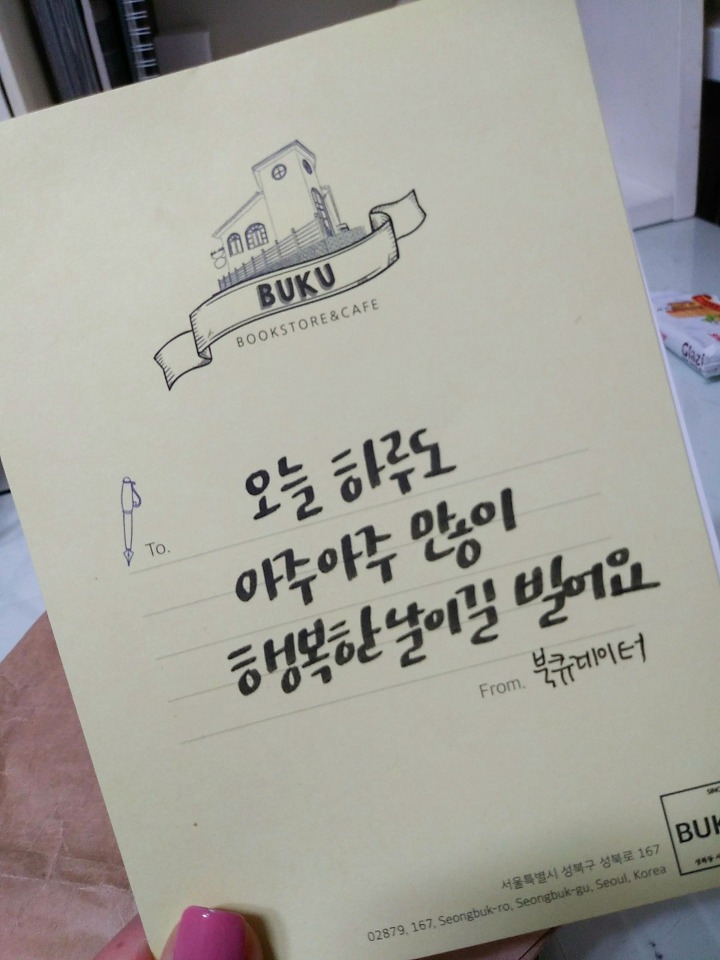 BUKU
BOOKSTORE&CAFE
To.
오늘 하루도
아주아주 많이
행복한 날이길 빌어요
From. 북큐레이터
서울특별시 성북구 성북로 167
02879, 167, Seongbuk-ro, Seongbuk-gu, Seoul, Korea